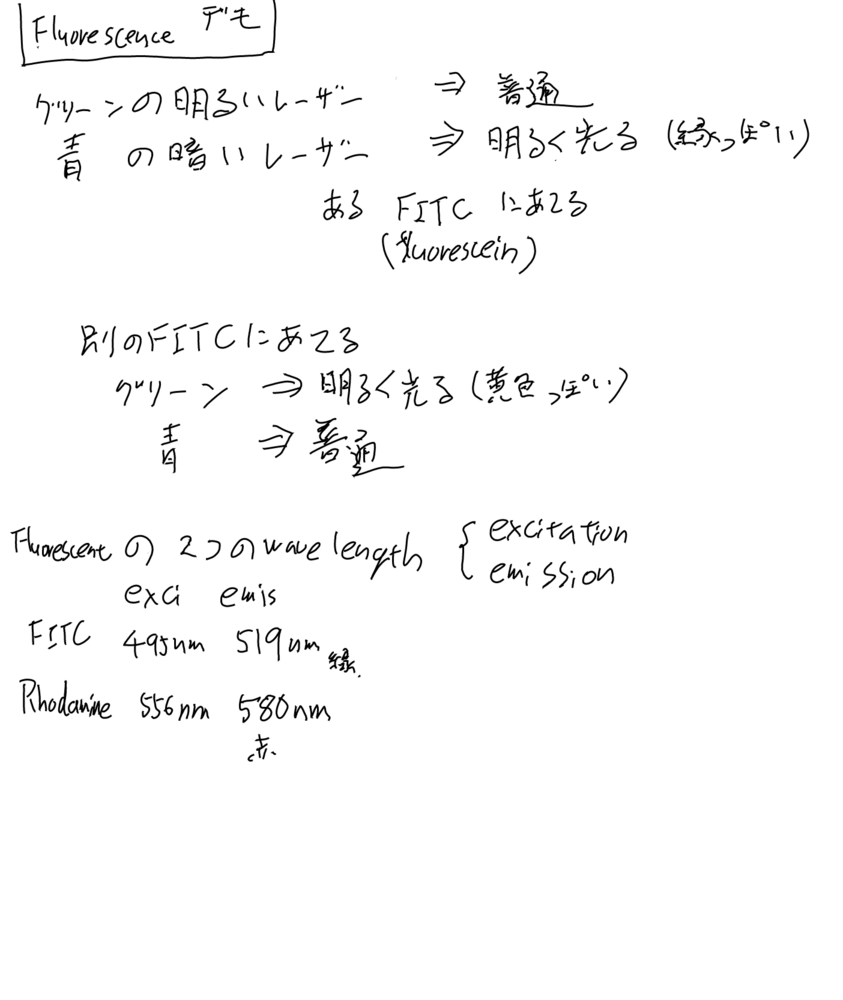 Fluorescence デモ
グリーンの明るいレーザー ⇒ 普通
青 の暗いレーザー ⇒ 明るく光る (緑っぽい)
ある FITC にあてる
(fluorescein)
別のFITCにあてる
グリーン ⇒ 明るく光る (黄色っぽい)
青 ⇒ 普通
Fluorescent の 2つのwavelength { excitation
emission
exci emis
FITC 495nm 519nm 緑
Rhodamine 556nm 580nm
赤